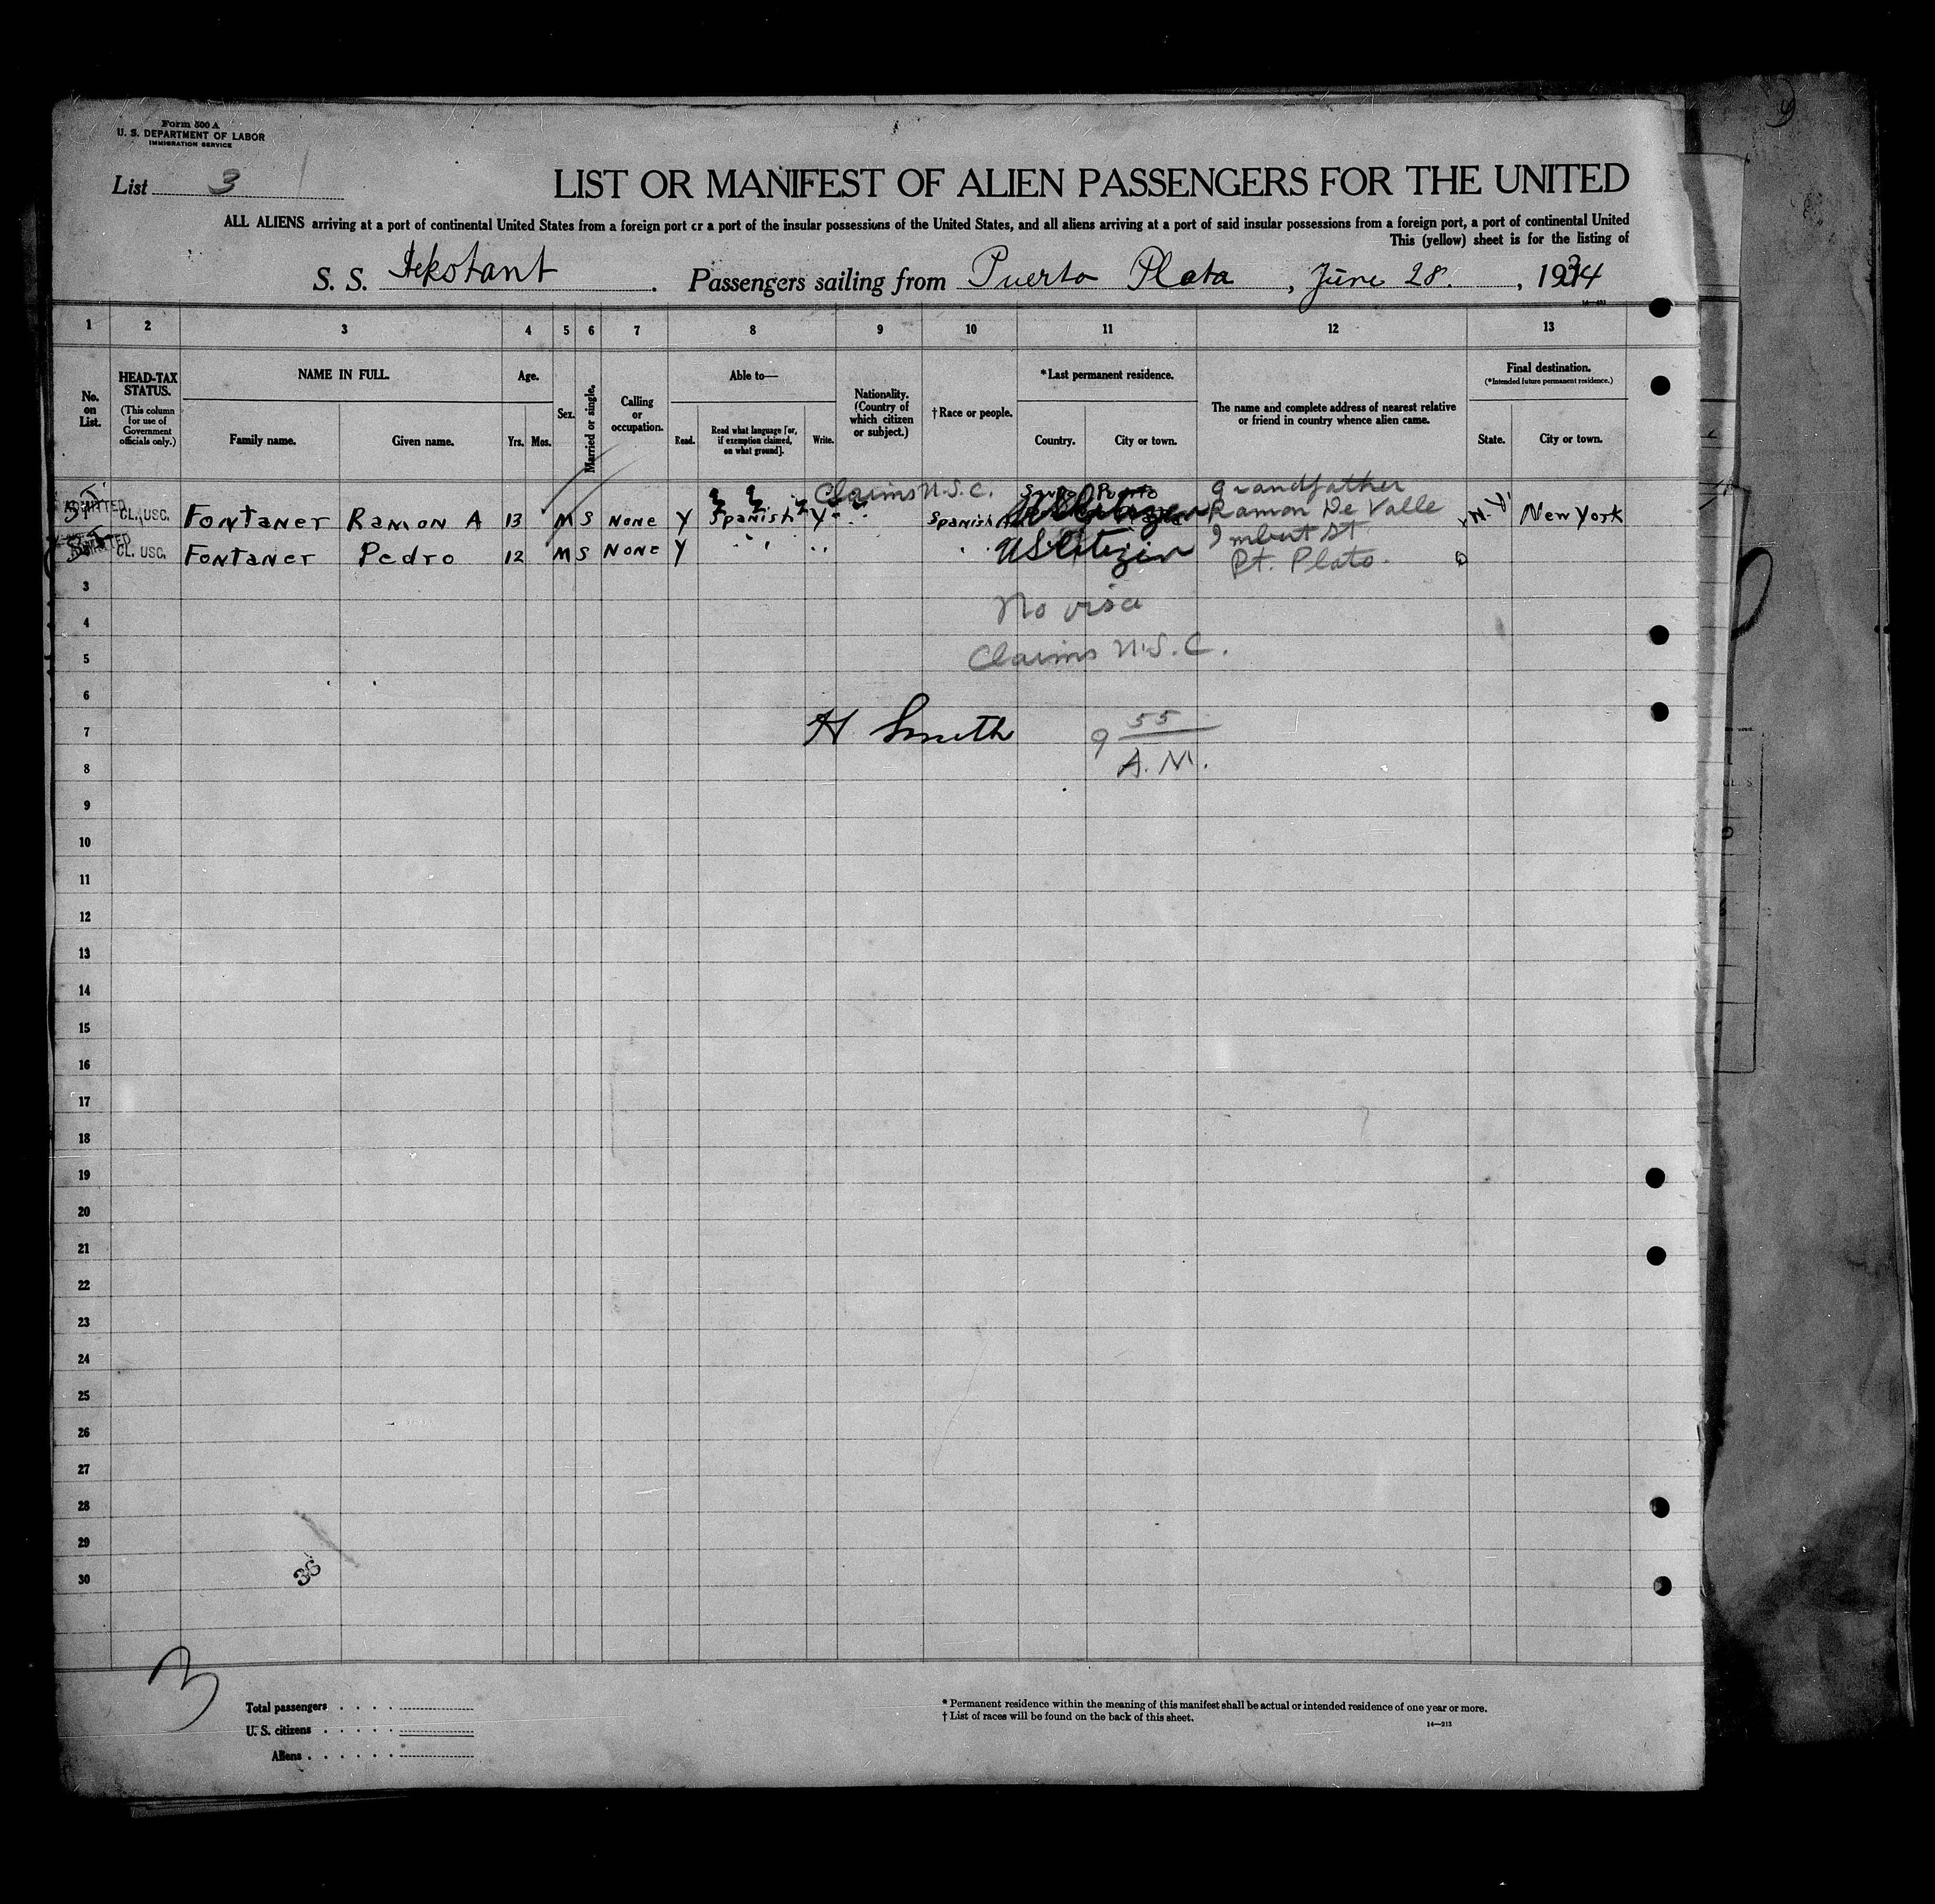 Form 500 A
U. S. DEPARTMENT OF LABOR
IMMIGRATION SERVICE
List 3
LIST OR MANIFEST OF ALIEN PASSENGERS FOR THE UNITED
ALL ALIENS arriving at a port of continental United States from a foreign port or a port of the insular possessions of the United States, and all aliens arriving at a port of said insular possessions from a foreign port, a port of continental United
This (yellow) sheet is for the listing of
S. S. Passengers sailing from Puerto Plata, June 28., 1934
1 2 3 4 5 6 7 8 9 10 11 12 13
No. on List.
HEAD-TAX STATUS.
(This column for use of Government officials only.)
NAME IN FULL.
Family name. Given name.
Age.
Yrs. Mos.
Sex.
Married or single.
Calling or occupation.
Able to—
Read.
Read what language [or, if exemption claimed, on what ground].
Write.
Nationality. (Country of which citizen or subject.)
† Race or people.
* Last permanent residence.
Country. City or town.
The name and complete address of nearest relative or friend in country whence alien came.
Final destination.
(* Intended future permanent residence.)
State. City or town.
Claims U.S.C. Santo Puerto grandfather
ADMITTED CL. USC. Fontaner Ramon A 13 M S None Y Spanish Y Spanish US Citizen Ramon De Valle N.Y. New York
Imbert St.
ADMITTED CL. USC. Fontaner Pedro 12 M S None Y US Citizen Pt. Plata.
3
No visa
4
Claims U.S.C.
5
6
7 H Smith 9 55
A.M.
8
9
10
11
12
13
14
15
16
17
18
19
20
21
22
23
24
25
26
27
28
29
30
36
3
Total passengers
U. S. citizens
Aliens
* Permanent residence within the meaning of this manifest shall be actual or intended residence of one year or more.
† List of races will be found on the back of this sheet.
14—213